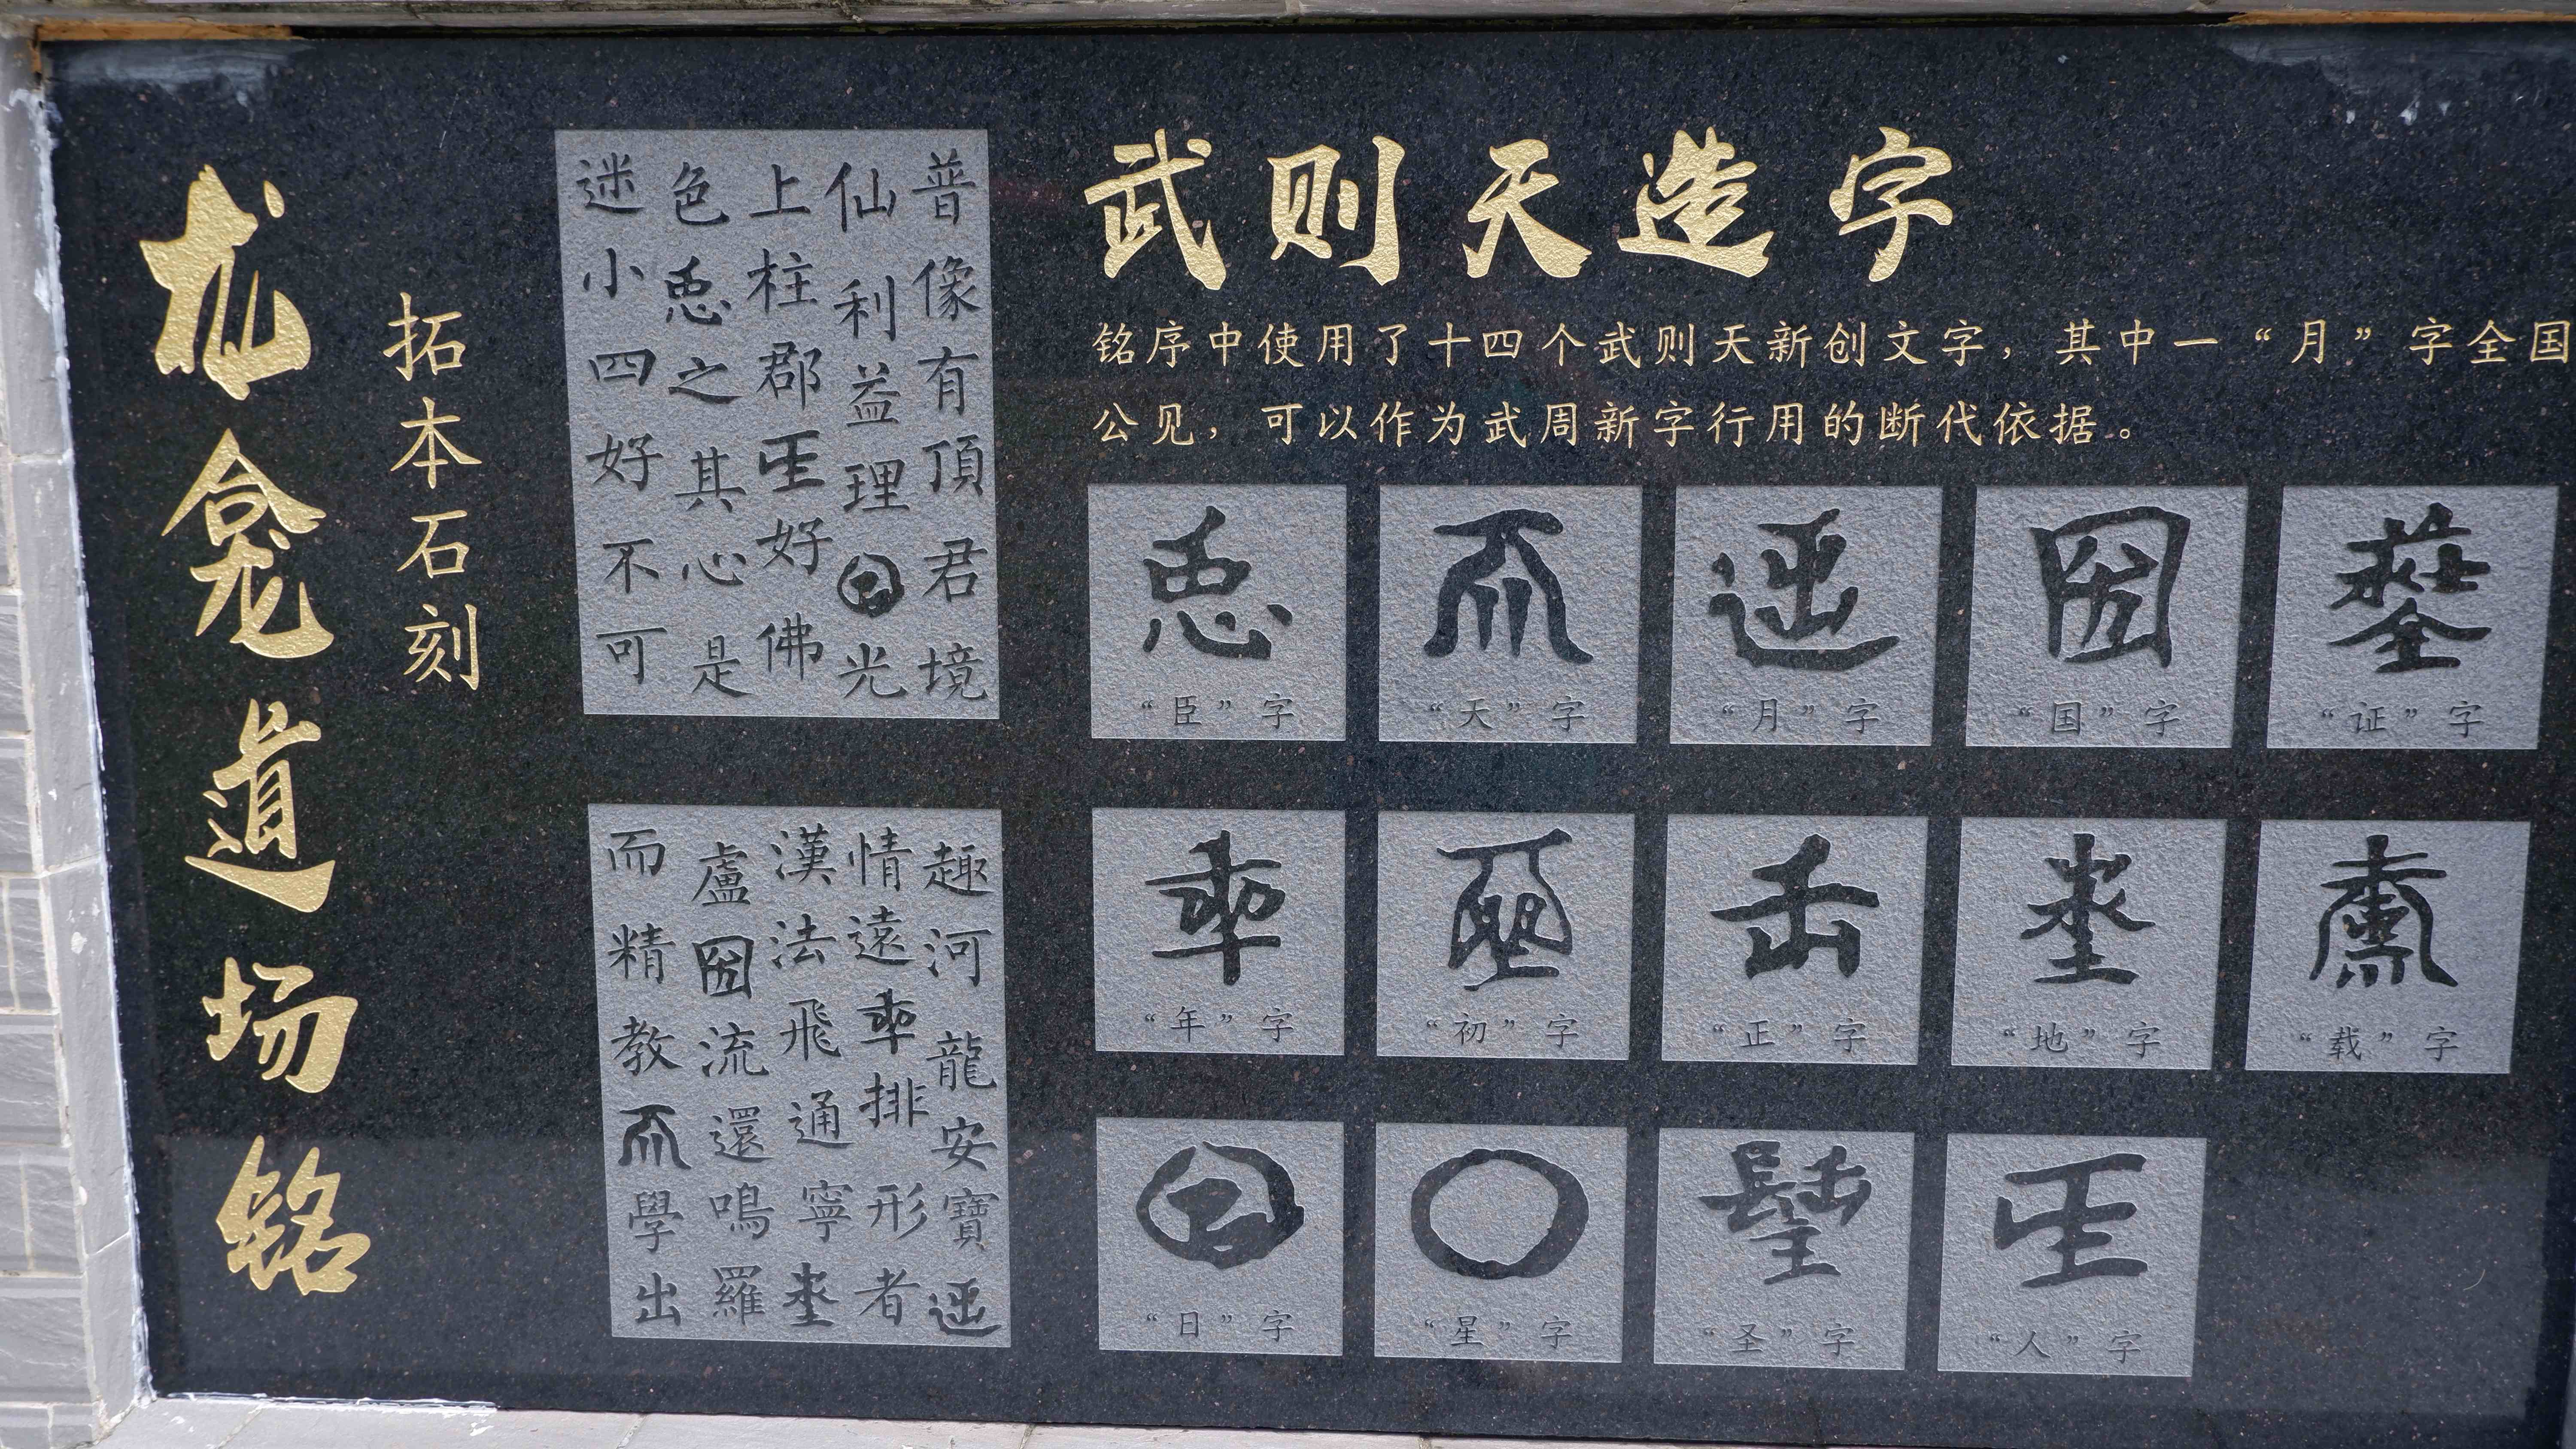 龙龛道场铭
拓本石刻
普像有頂君境
仙利益理𡆠光
上柱郡𤯔好佛
色𢘑之其心是
迷小四好不可
趣河龍安寶
情遠𠡦排形者
漢法飛通寧埊
盧圀流還鳴羅
而精教𠀑學出
武则天造字
铭序中使用了十四个武则天新创文字，其中一“月”字全国
公见，可以作为武周新字行用的断代依据。
𢘑
“臣”字
𠀑
“天”字
“月”字
圀
“国”字
“证”字
𠡦
“年”字
“初”字
𠙺
“正”字
埊
“地”字
“载”字
𡆠
“日”字
〇
“星”字
“圣”字
𤯔
“人”字